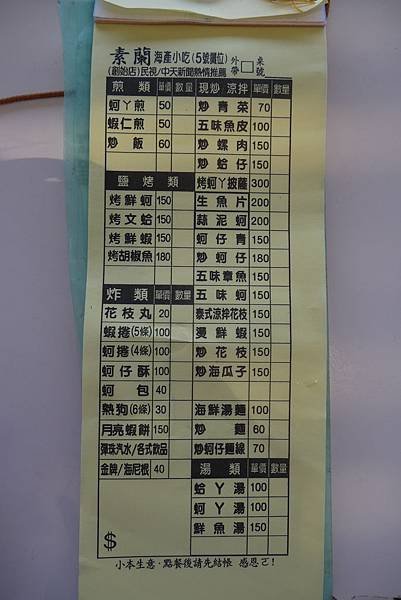 素蘭海產小吃(5號攤位)
外帶□ 桌號
(創始店)民視/中天新聞熱情推薦
煎類 單價 數量
蚵ㄚ煎 50
蝦仁煎 50
炒飯 60
鹽烤類
烤鮮蚵 150
烤文蛤 150
烤鮮蝦 150
烤胡椒魚 180
炸類 單價 數量
花枝丸 20
蝦捲(5條) 100
蚵捲(4條) 100
蚵仔酥 100
蚵包 40
熱狗(6條) 30
月亮蝦餅 150
彈珠汽水/各式飲品
金牌/海尼根 40
$
現炒 涼拌 單價 數量
炒青菜 70
五味魚皮 100
炒螺肉 150
炒蛤仔 150
烤蚵ㄚ披薩 300
生魚片 200
蒜泥蚵 200
蚵仔青 150
炒蚵仔 180
五味章魚 150
五味蚵 150
泰式涼拌花枝 150
燙鮮蝦 150
炒花枝 150
炒海瓜子 150
海鮮湯麵 100
炒麵 60
炒蚵仔麵線 70
湯類 單價 數量
蛤ㄚ湯 100
蚵ㄚ湯 100
鮮魚湯 150
小本生意‧點餐後請先結帳 感恩ㄛ!